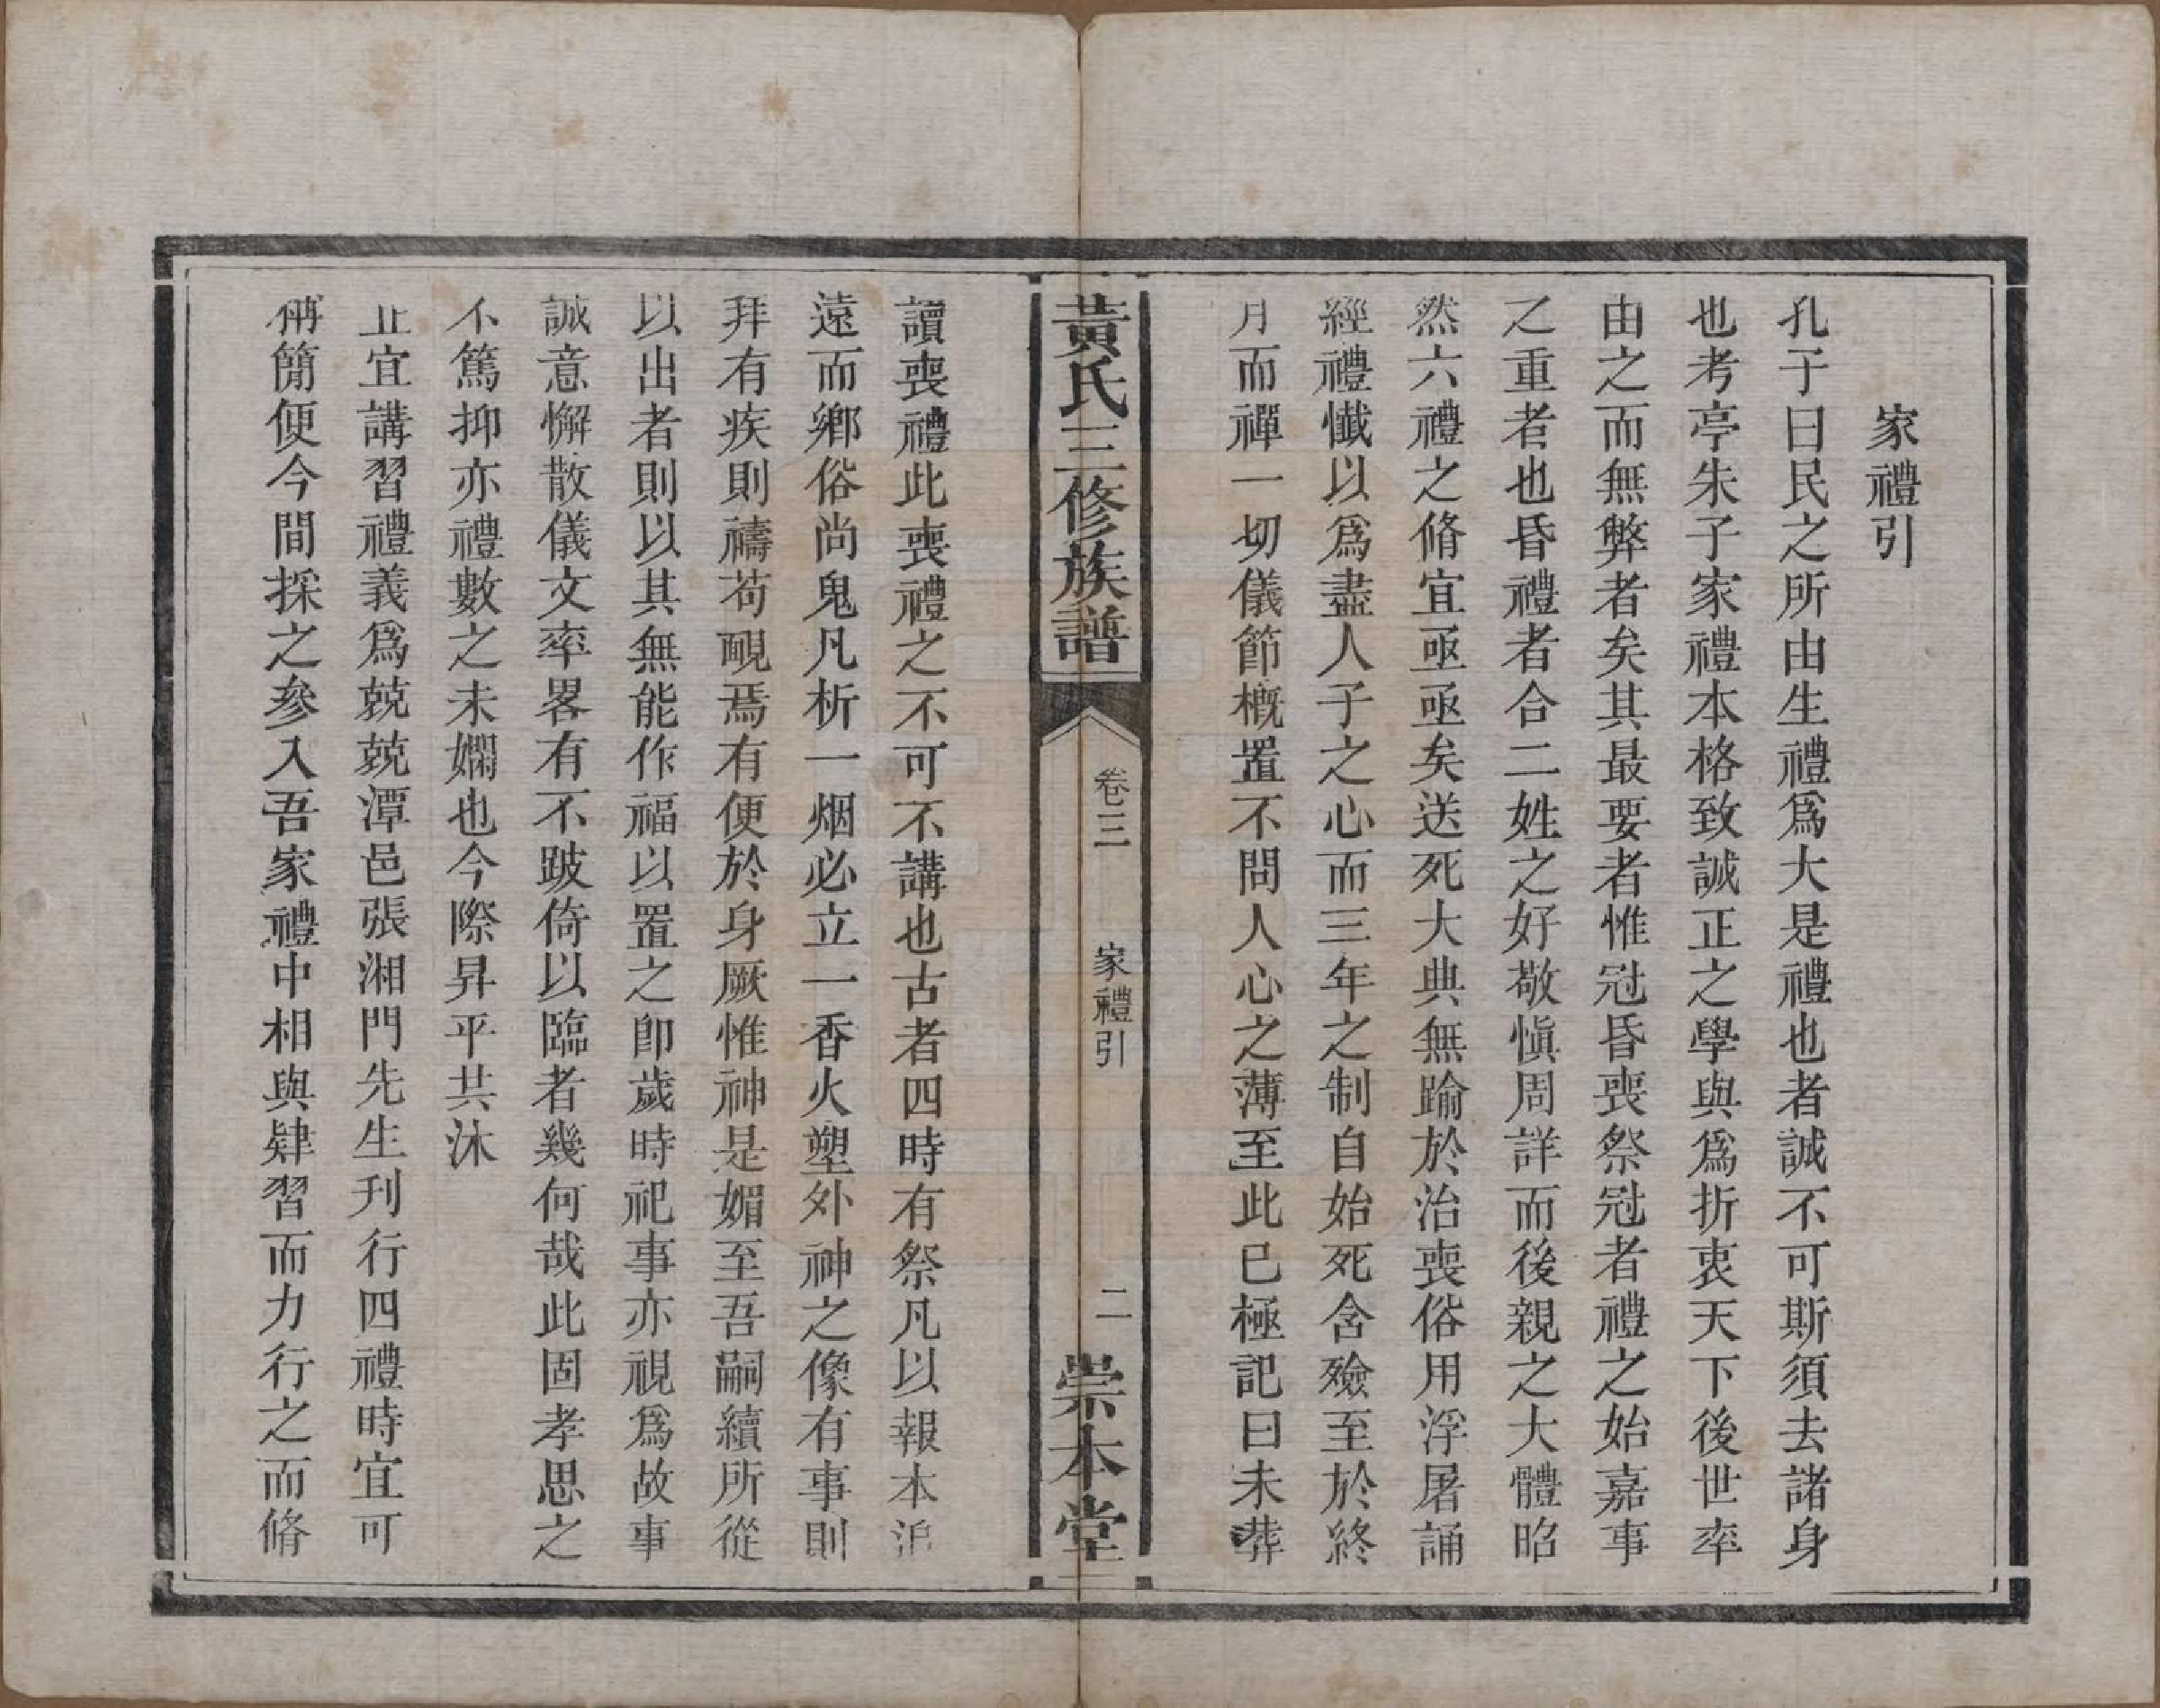 家禮引
孔子曰民之所由生禮爲大是禮也者誠不可斯須去諸身
也考亭朱子家禮本格致誠正之學與爲折衷天下後世率
由之而無弊者矣其最要者惟冠昏喪祭冠者禮之始嘉事
之重者也昏禮者合二姓之好敬愼周詳而後親之大體昭
然六禮之脩宜亟亟矣送死大典無踰於治喪俗用浮屠誦
經禮懺以爲盡人子之心而三年之制自始死含殮至於終
月而禫一切儀節槪置不問人心之薄至此已極記曰未葬
黃氏三修族譜
卷三
家禮引
二
崇本堂
讀喪禮此喪禮之不可不講也古者四時有祭凡以報本追
遠而鄉俗尚鬼凡析一烟必立一香火塑外神之像有事則
拜有疾則禱苟覼焉有便於身厥惟神是媚至吾嗣續所從
以出者則以其無能作福以置之卽歲時祀事亦視爲故事
誠意懈散儀文率畧有不跛倚以臨者幾何哉此固孝思之
不篤抑亦禮數之未嫻也今際昇平共沐
上宜講習禮義爲兢兢潭邑張湘門先生刋行四禮時宜可
稱簡便今間採之參入吾家禮中相與肄習而力行之而脩